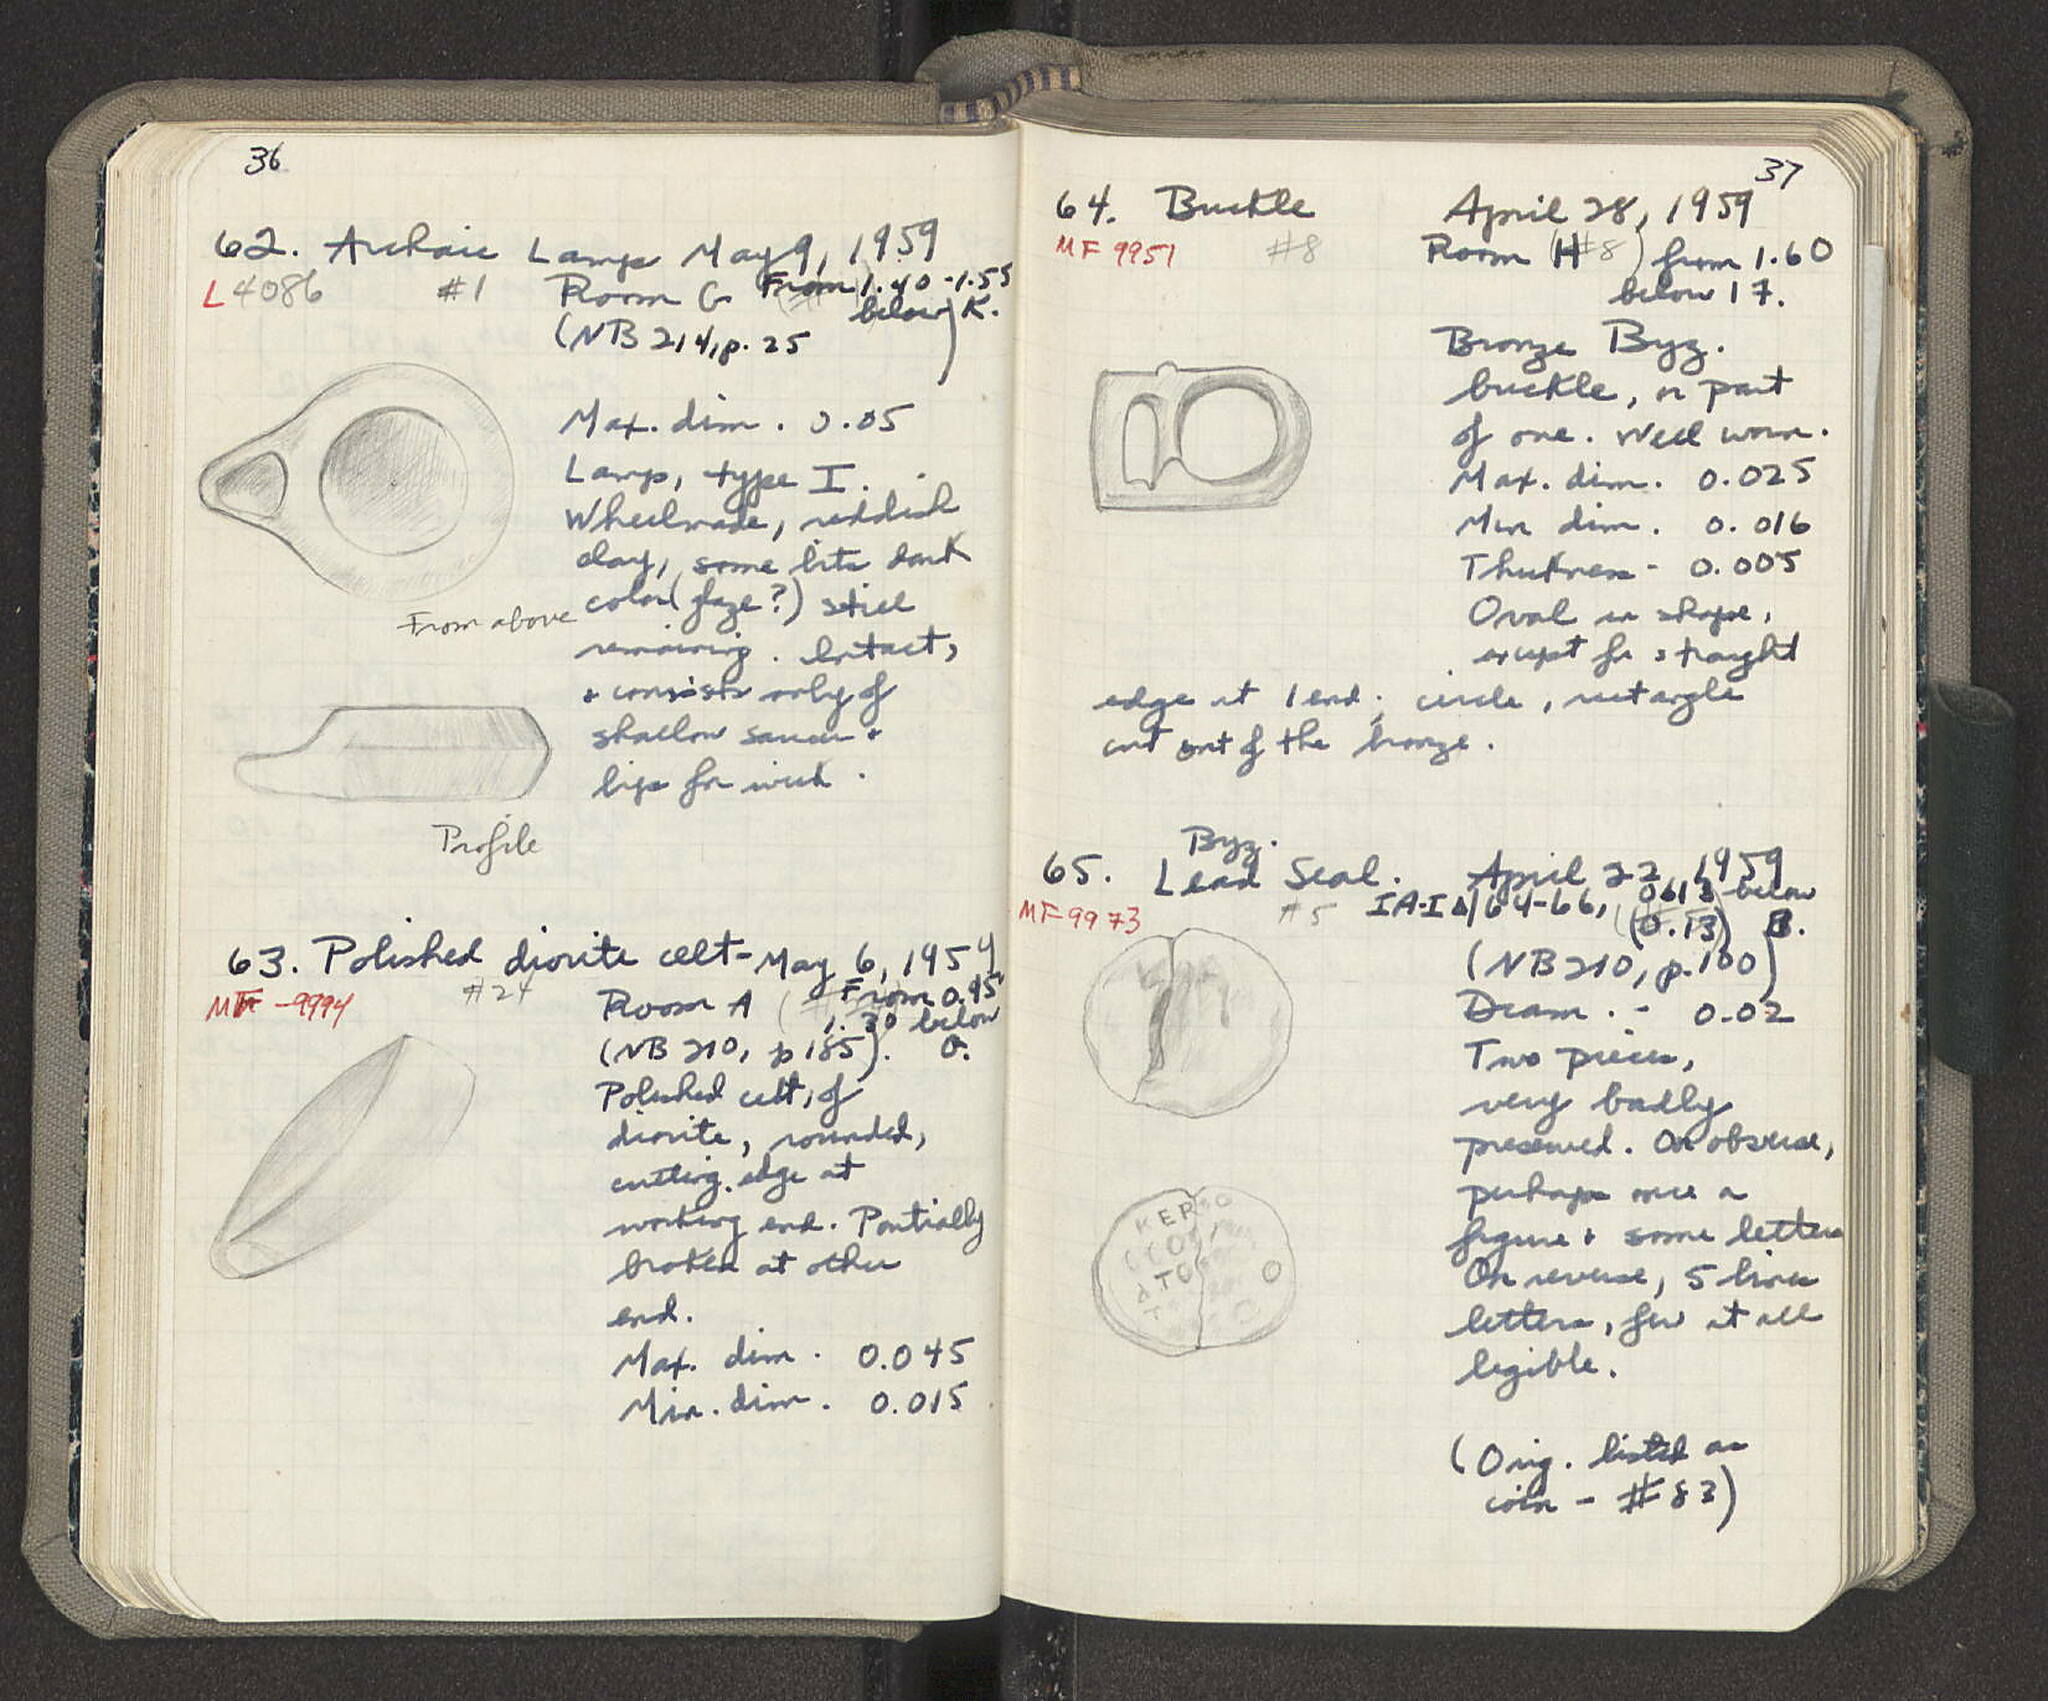 36
62. Archaic Lamp May 9, 1959
L 4086 #1 Room G From 1.40-1.55
below K.
(NB 214, p. 25)
Max. dim. 0.05
Lamp, type I.
Wheelmade, reddish
clay, some bits dark
color (glaze?) still
From above
remaining. Intact,
+ consists only of
shallow saucer +
lips for wick.
Profile
63. Polished diorite celt - May 6, 1959
MF-9994 #24 Room A From 0.95
1.30 below
(NB 210, p 185). O.
Polished celt, of
diorite, rounded,
cutting edge at
working end. Partially
broken at other
end.
Max. dim. 0.045
Min. dim. 0.015
37
64. Buckle April 28, 1959
MF 9951 #8 Room H (#8) from 1.60
below 17.
Bronze Byz.
buckle, or part
of one. Well worn.
Max. dim. 0.025
Min dim. 0.016
Thickness - 0.005
Oval in shape,
except for straight
edge at 1 end; circle, rectangle
cut out of the bronze.
Byz.
65. Lead Seal. April 22, 1959
MF-9973 #5 IA-IΔ/64-66, below
(0.13) B.
(NB 210, p. 100)
Diam. - 0.02
Two pieces,
very badly
preserved. On obverse,
perhaps once a
figure + some letters
On reverse, 5 lines
letters, few at all
legible.
KER
ATO
T
O
(Orig. listed as
coin - #83)